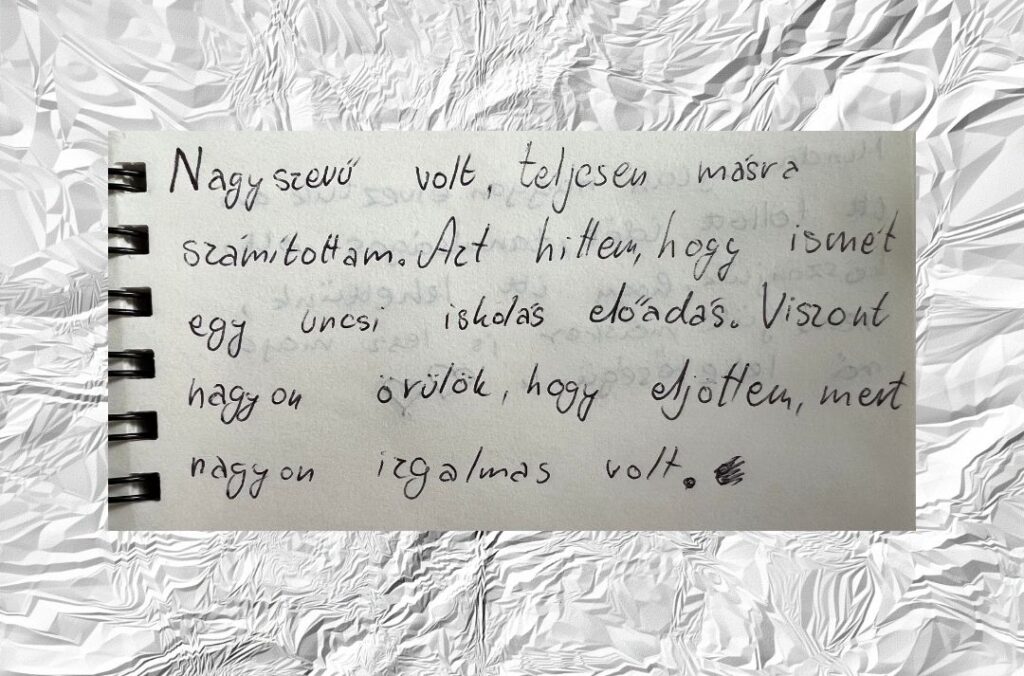 Nagyszevű volt, teljesen másra
számítottam. Azt hittem, hogy ismét
egy uncsi iskolás előadás. Viszont
nagyon örülök, hogy eljöttem, mert
nagyon izgalmas volt.